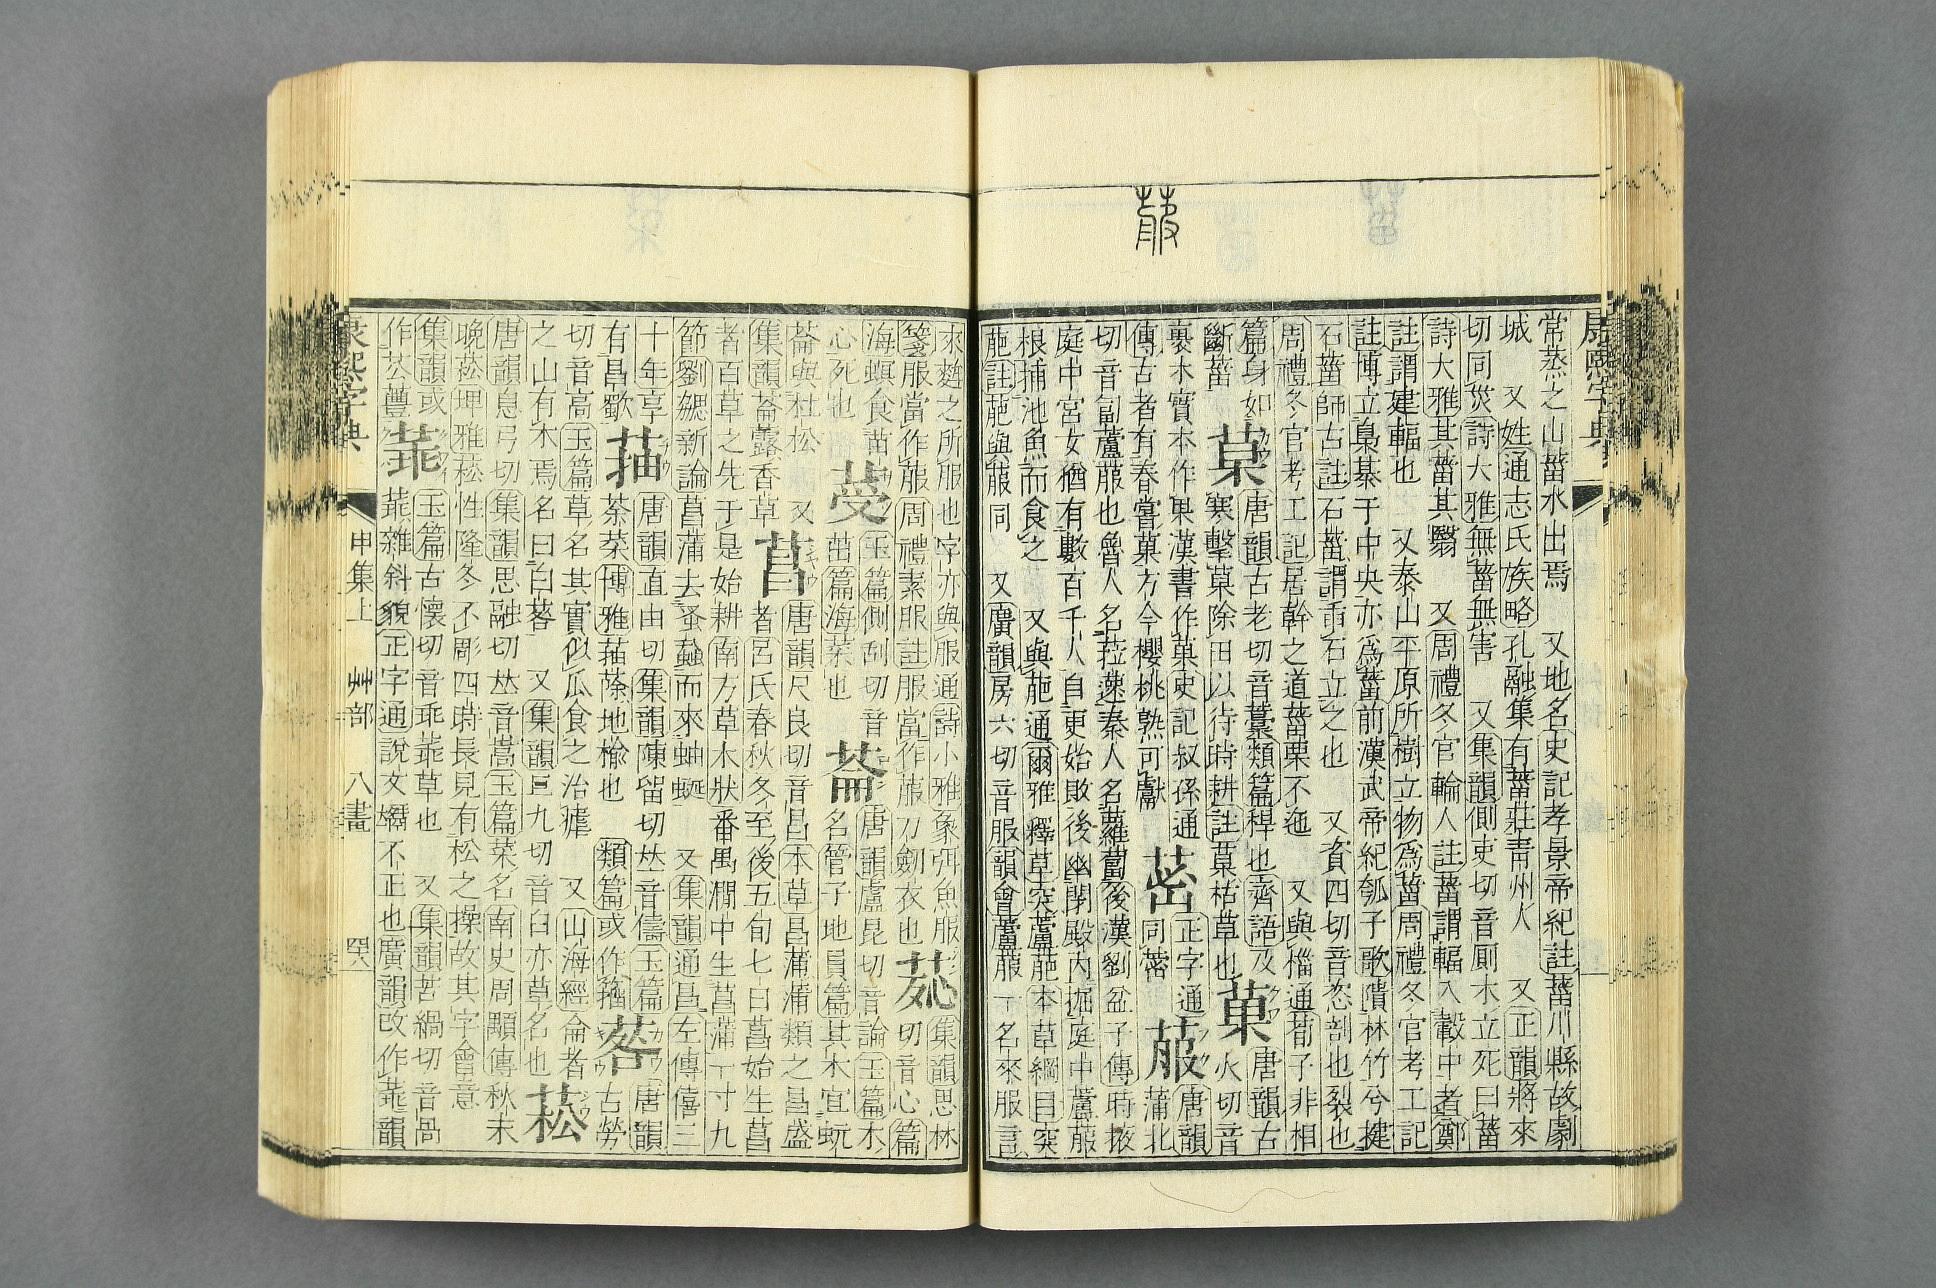 康熙字典
常蒸之山菑水出焉 又地名史記孝景帝紀註菑川縣故劇
城 又姓通志氏族略孔融集有菑莊青州人 又正韻將來
切同烖詩大雅無菑無害 又集韻側吏切音厠木立死曰菑
詩大雅其菑其翳 又周禮冬官輪人註菑謂輻入轂中者鄭
註謂建輻也 又泰山平原所樹立物爲菑周禮冬官考工記
註博立梟棊于中央亦爲菑前漢武帝紀瓠子歌隤林竹兮揵
石菑師古註石菑謂臿石立之也 又資四切音恣剖也裂也
周禮冬官考工記居幹之道菑栗不迤 又與椔通荀子非相
篇身如 菒 唐韻古老切音藁類篇稈也齊語及 菓 唐韻古
斷菑 寒擊菒除田以待時耕註菒枯草也 火切音
裹木實本作果漢書作菓史記叔孫通 正字通 菔 唐韻
傳古者有春嘗菓方今櫻桃熟可獻 同蔤 蒲北
切音匐蘆菔也魯人名菈䔩秦人名蘿蔔後漢劉盆子傳時掖
庭中宮女猶有數百千人自更始敗後幽閉殿內掘庭中蘆菔
根捕池魚而食之 又與萉通爾雅釋草葖蘆萉本草綱目葖
萉註萉與菔同 又廣韻房六切音服韻會蘆菔一名來服言
來麰之所服也字亦與服通詩小雅象弭魚服 菍 集韻思林
箋服當作菔周禮素服註服當作菔刀劒衣也 切音心篇
海螟食苗 玉篇側刮切音 菕 唐韻盧昆切音論玉篇木
心死也 茁篇海菜也 名管子地員篇其木宜蚖
菕與杜松 又 菖 唐韻尺良切音昌本草昌蒲蒲類之昌盛
集韻菕蘦香草 者呂氏春秋冬至後五旬七日菖始生菖
者百草之先于是始耕南方草木狀番禺㵎中生菖蒲一寸九
節劉勰新論菖蒲去蚤蝨而來蛐蜒 又集韻通昌左傳僖三
十年享 菗 唐韻直由切集韻陳留切𠀤音儔玉篇 䓘 唐韻
有昌歜 荼菜博雅菗蒢地楡也 類篇或作籀 古勞
切音高玉篇草名其實似瓜食之治瘧 又山海經侖者 菘
之山有木焉名曰白䓘 又集韻巨九切音臼亦草名也
唐韻息弓切集韻思融切𠀤音嵩玉篇菜名南史周顒傳秋末
晚菘埤雅菘性隆冬不彫四時長見有松之操故其字會意
集韻或 䓙 玉篇古懷切音乖䓙草也 又集韻苦緺切音咼
作蘴 䓙雜斜貌正字通說文孈不正也廣韻改作䓙韻
康熙字典 申集上 艸部 八畫